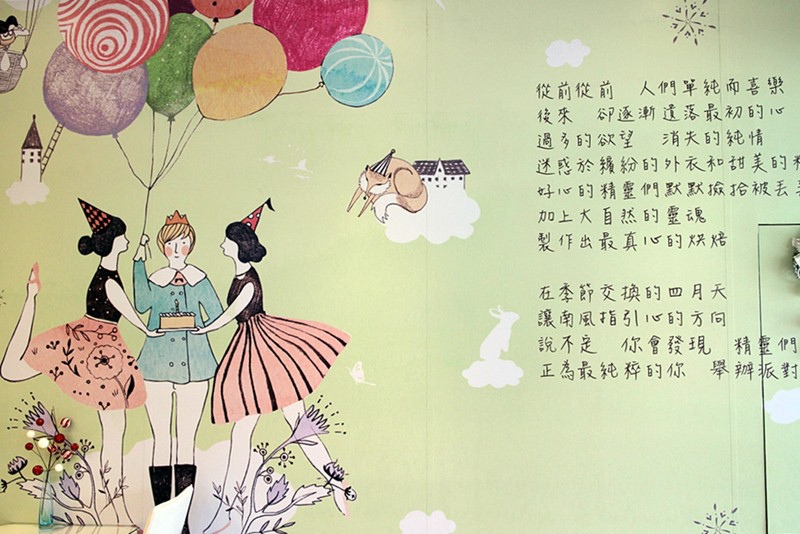 從前從前　人們單純而喜樂
後來　卻逐漸遺落最初的心
過多的欲望　消失的純情
迷惑於繽紛的外衣和甜美的
好心的精靈們默默撿拾被丟
加上大自然的靈魂
製作出最真心的烘焙
在季節交換的四月天
讓南風指引心的方向
說不定　你會發現　精靈們
正為最純粹的你　舉辦派對